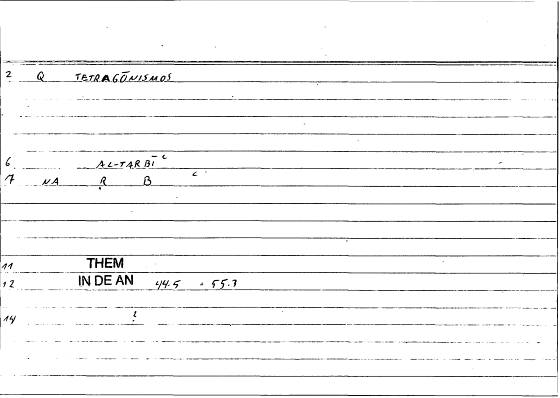 2 Q TETRAGŌNISMOS
6 AL-TARBĪʿ
17 NA R B ʿ
11 THEM
12 IN DE AN 44.5 - 55.3
14 ?